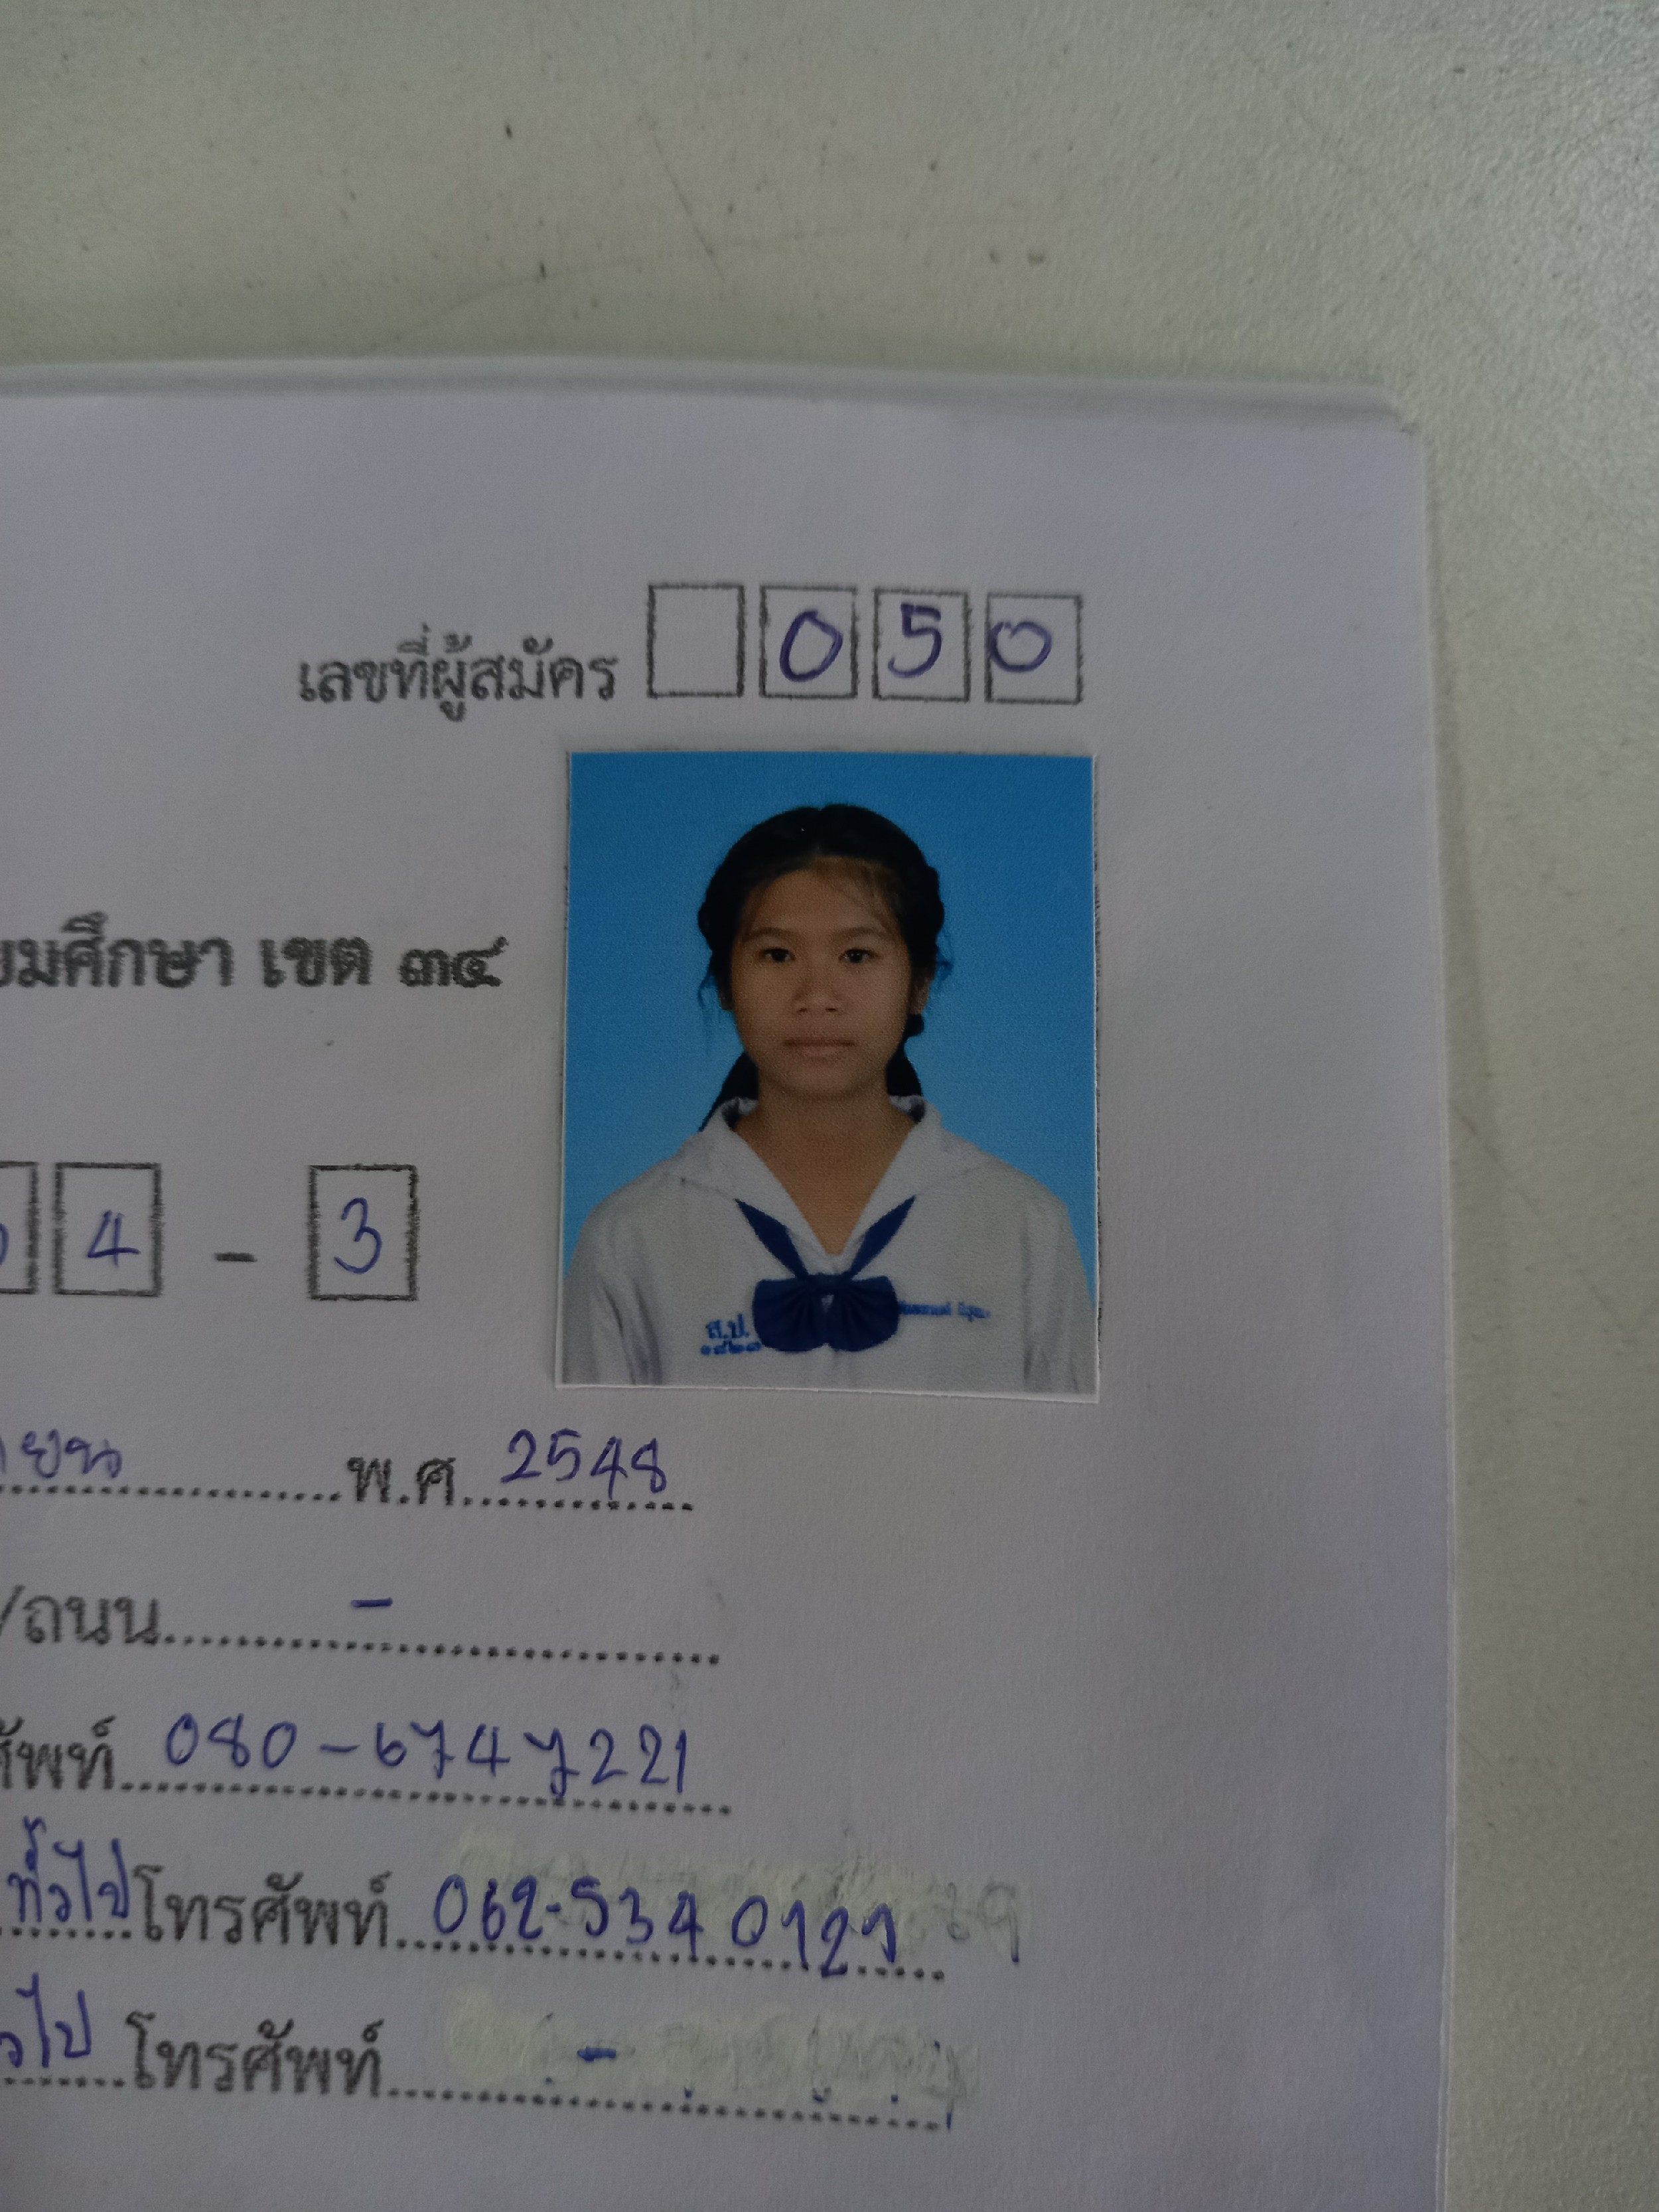 เลขที่ผู้สมัคร 0 5 0
ยมศึกษา เขต ๓๔
4 - 3
ส.ป.
ายน พ.ศ. 2548
/ถนน -
ศัพท์ 080-6747221
ทั่วไป โทรศัพท์ 062-534 0121
วไป โทรศัพท์ -